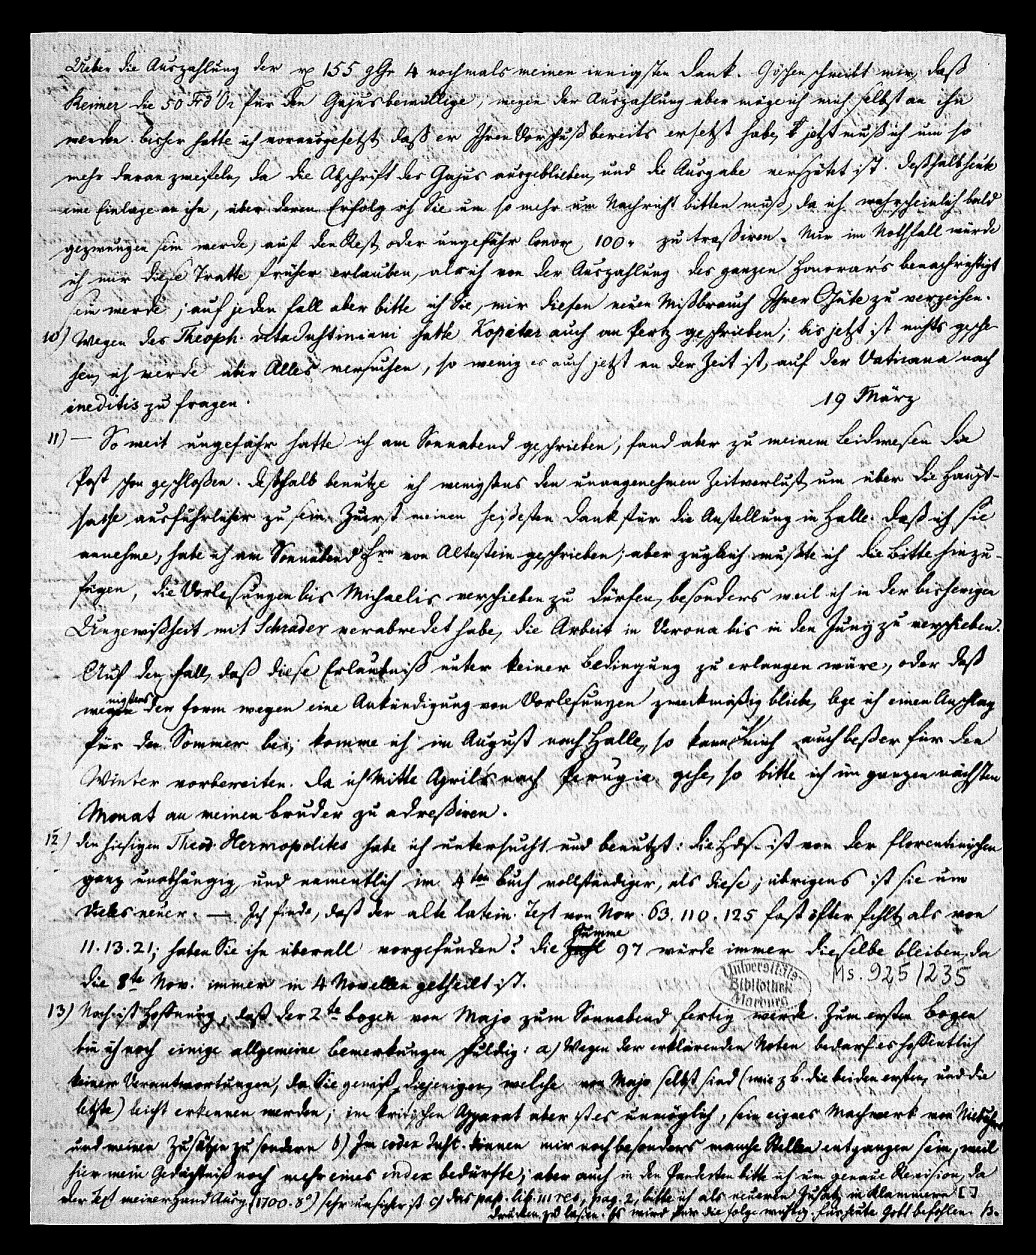 Ueber die Auszahlung der rℓ 155 gGr 4 nochmals meinen innigsten Dank. Göschen schreibt mir, daß
Reimer die 50 Frd'Or für den Gajus bewillige, wegen der Auszahlung aber möge ich mich selbst an ihn
wenden. bisher hatte ich vorausgesetzt, daß er Ihren Vorschuß bereits ersetzt habe, jetzt muß ich um so
mehr daran zweifeln, da die Abschrift des Gajus ausgeblieben, und die Ausgabe verspätet ist. Deßhalb heute
eine Einlage an ihn, über deren Erfolg ich Sie um so mehr um Nachricht bitten muß, da ich wahrscheinlich bald
gezwungen sein werde, auf den Rest, oder ungefähr 100. zu trassiren. Nur im Nothfall würde
ich mir diese Tratte früher erlauben, als ich von der Auszahlung des ganzen Honorars benachrichtigt
sein werde; auf jeden Fall aber bitte ich Sie, mir diesen neuen Mißbrauch Ihrer Güte zu verzeihen.
10) Wegen des Theoph. vita Justiniani hatte Kopitar auch an Pertz geschrieben; bis jetzt ist nichts gesche-
hen, ich werde aber Alles versuchen, so wenig es auch jetzt an der Zeit ist, auf der Vaticana nach
ineditis zu fragen.
19 März
11) — So weit ungefähr hatte ich am Sonnabend geschrieben, fand aber zu meinem Leidwesen die
Post schon geschloßen. Deßhalb benutze ich wenigstens den unangenehmen Zeitverlust, um über die Haupt-
sache ausführlicher zu sein. Zuerst meinen heißesten Dank für die Anstellung in Halle. Daß ich sie
annehme, habe ich am Sonnabend Hrn von Altenstein geschrieben; aber zugleich mußte ich die Bitte hinzu-
fügen, die Vorlesungen bis Michaelis verschieben zu dürfen, besonders weil ich in der bisherigen
Ungewißheit mit Schrader verabredet habe, die Arbeit in Verona bis in den Junij zu verschieben.
Auf den Fall, daß diese Erlaubniß unter keiner Bedingung zu erlangen wäre, oder daß
wenigstens der Form wegen eine Ankündigung von Vorlesungen zweckmäßig bliebe, lege ich einen Anschlag
für den Sommer bei; komme ich im August nach Halle, so kann ich mich auch beßer für den
Winter vorbereiten. Da ich Mitte Aprils nach Perugia gehe, so bitte ich im ganzen nächsten
Monat an meinen Bruder zu adreßiren.
12) Den hiesigen Theod. Hermopolites habe ich untersucht und benutzt: die Hdsch ist von der florentinischen
ganz unabhängig und namentlich im 4ten Buch vollständiger, als diese; übrigens ist sie um
Vieles neuer. — Ich finde, daß der alte latein. Text von Nov. 63. 110. 125 fast öfter fehlt, als von
11. 13. 21; haben Sie ihn überall vorgefunden? Die Summe 97 würde immer dieselbe bleiben, da
die 8te Nov. immer in 4 Novellen getheilt ist.
Universitäts
Bibliothek
Marburg
Ms. 925/235
13) Noch ist Hoffnung, daß der 2te Bogen von Majo zum Sonnabend fertig werde. Zum ersten Bogen
bin ich noch einige allgemeine Bemerkungen schuldig: a) Wegen der erklärenden Noten bedarf es hoffentlich
keiner Verantwortungen, da Sie gewiß diejenigen, welche von Majo selbst sind (wie z b. die beiden ersten, und die
letzte) leicht erkennen werden; im kritischen Apparat aber ist es unmöglich, sein eignes Machwerk von Niebuhrs
und meinen Zusätzen zu sondern b) Im codex Just. können mir noch besonders manche Stellen entgangen sein, weil
hier mein Gedächtniß noch mehr eines index bedürfte; aber auch in den Pandecten bitte ich um genaue Revision, da
der Text meiner Hand Ausg. (1700. 8º) sehr unsicher ist c) das pap. lib. III res, pag. 2, bitte ich als neueren Zusatz in Klammern []
drucken zu laßen. Es wird für die Folge wichtig. Für heute Gott befohlen. B.